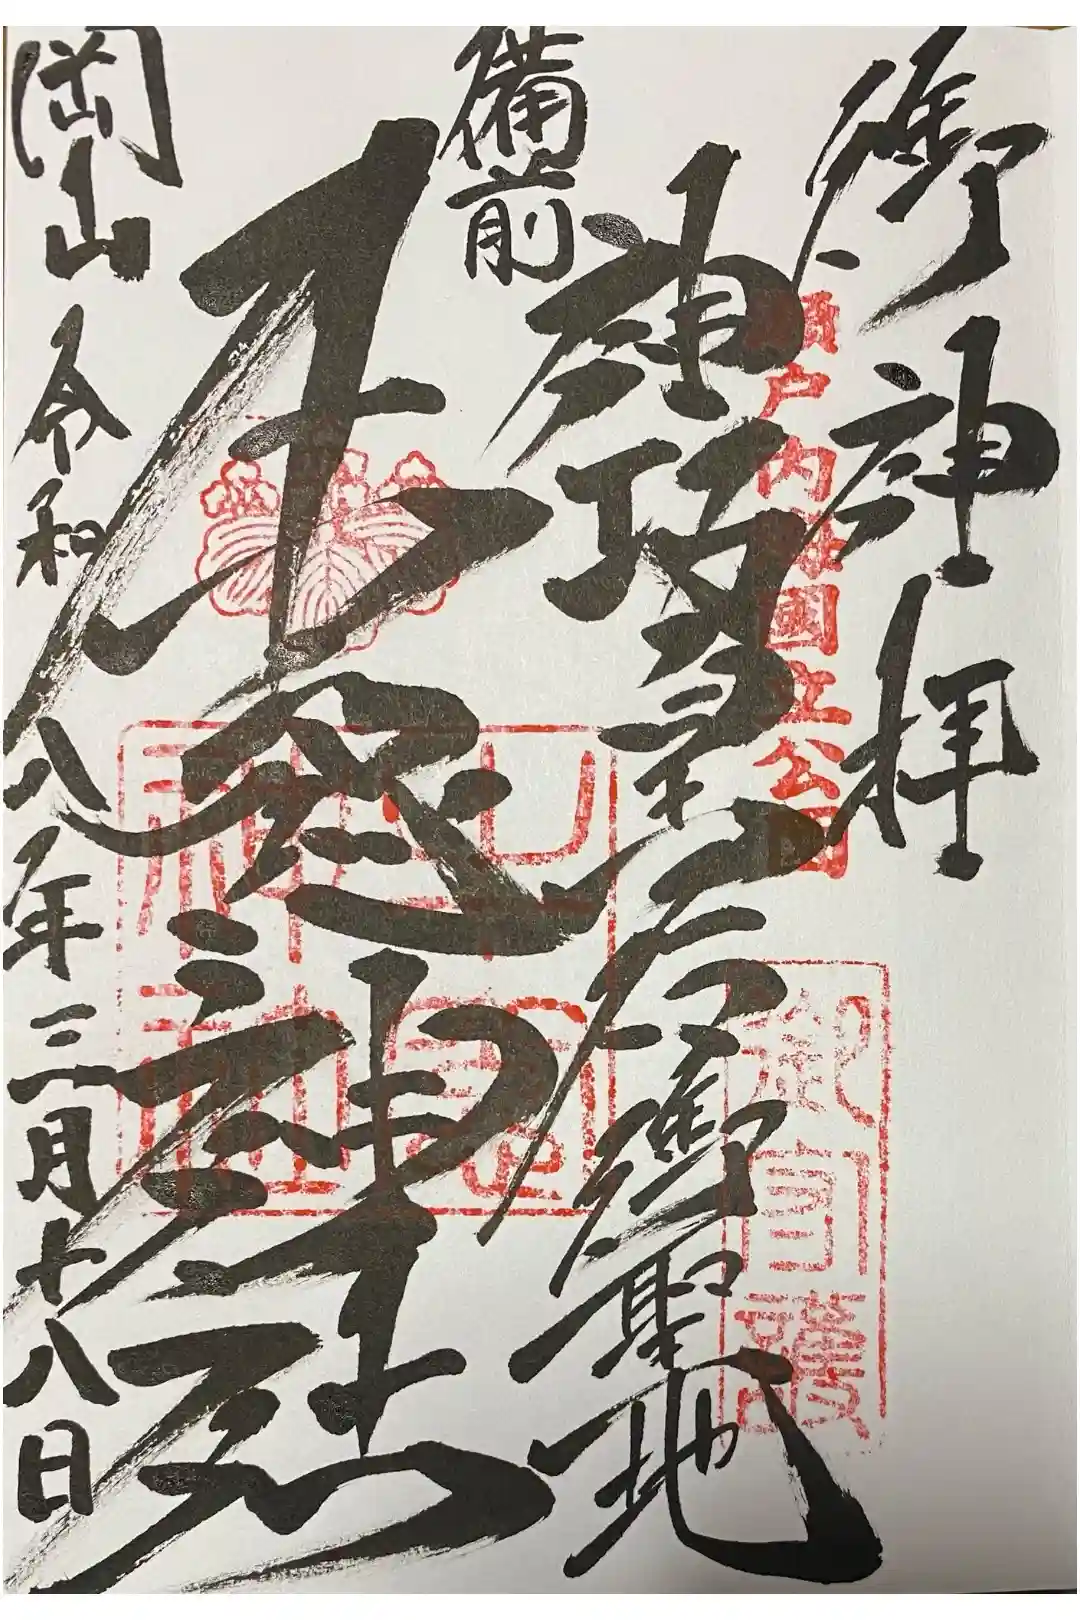 御神拝
瀬戸内海國立公園
神功皇后御聖地
備前
牛窓神社
岡山
令和八年三月十八日